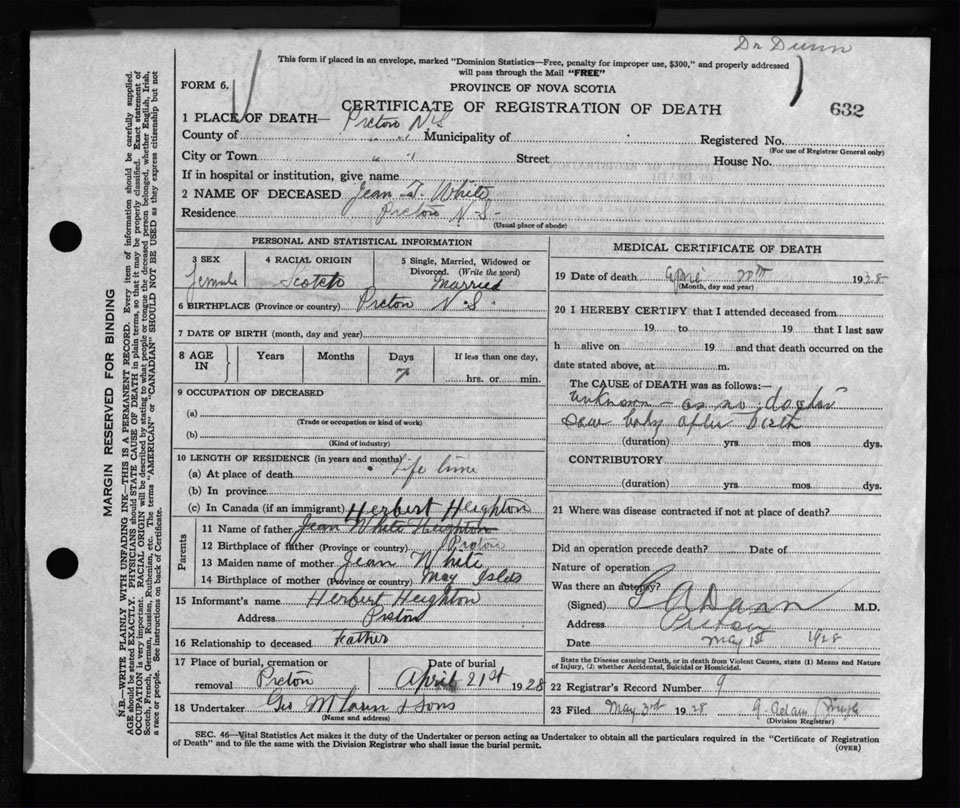 Dr Dunn
This form if placed in an envelope, marked "Dominion Statistics—Free, penalty for improper use, $300," and properly addressed
will pass through the Mail "FREE"
FORM 6.
PROVINCE OF NOVA SCOTIA
CERTIFICATE OF REGISTRATION OF DEATH
632
1 PLACE OF DEATH— Pictou N S
County of " " Municipality of Registered No.
(For use of Registrar General only)
City or Town " " Street House No.
If in hospital or institution, give name
2 NAME OF DECEASED Jean White
Residence Pictou N. S.
(Usual place of abode)
PERSONAL AND STATISTICAL INFORMATION
3 SEX 4 RACIAL ORIGIN 5 Single, Married, Widowed or
Divorced. (Write the word)
Female Scotch Married
6 BIRTHPLACE (Province or country) Pictou N. S
7 DATE OF BIRTH (month, day and year)
8 AGE IN Years Months Days If less than one day,
7 hrs. or min.
9 OCCUPATION OF DECEASED
(a)
(Trade or occupation or kind of work)
(b)
(Kind of industry)
10 LENGTH OF RESIDENCE (in years and months)
(a) At place of death Life time
(b) In province
(c) In Canada (if an immigrant) Herbert Heighton
Parents
11 Name of father Jean White Heighton
12 Birthplace of father (Province or country) Pictou
13 Maiden name of mother Jean White
14 Birthplace of mother (Province or country)
15 Informant's name Herbert Heighton
Address Pictou
16 Relationship to deceased Father
17 Place of burial, cremation or Date of burial
removal Pictou April 21st 1928
18 Undertaker Geo & Sons
(Name and address)
MEDICAL CERTIFICATE OF DEATH
19 Date of death April 20th 1928
(Month, day and year)
20 I HEREBY CERTIFY that I attended deceased from
19 to 19 that I last saw
h alive on 19 and that death occurred on the
date stated above, at m.
The CAUSE of DEATH was as follows:—
Unknown - as no doctor
saw baby after Birth
(duration) yrs. mos. dys.
CONTRIBUTORY
(duration) yrs. mos. dys.
21 Where was disease contracted if not at place of death?
Did an operation precede death? Date of
Nature of operation
Was there an autopsy?
(Signed) M.D.
Address Pictou
Date May 1st 1928
State the Disease causing Death, or in death from Violent Causes, state (1) Means and Nature
of Injury, (2) whether Accidental, Suicidal or Homicidal.
22 Registrar's Record Number 9
23 Filed May 3rd 1928
(Division Registrar)
SEC. 46—Vital Statistics Act makes it the duty of the Undertaker or person acting as Undertaker to obtain all the particulars required in the "Certificate of Registration
of Death" and to file the same with the Division Registrar who shall issue the burial permit.
(OVER)
MARGIN RESERVED FOR BINDING
N.B.—WRITE PLAINLY WITH UNFADING INK—THIS IS A PERMANENT RECORD. Every item of information should be carefully supplied.
AGE should be stated EXACTLY. PHYSICIANS should STATE CAUSE OF DEATH in plain terms, so that it may be properly classified. Exact statement of
OCCUPATION is very important. RACIAL ORIGIN will be described by stating to what people or tongue the deceased person belonged, whether English, Irish,
Scotch, French, German, Russian, Ruthenian, etc. The terms "AMERICAN" or "CANADIAN" SHOULD NOT BE USED as they express citizenship but not
a race or people. See instructions on back of Certificate.